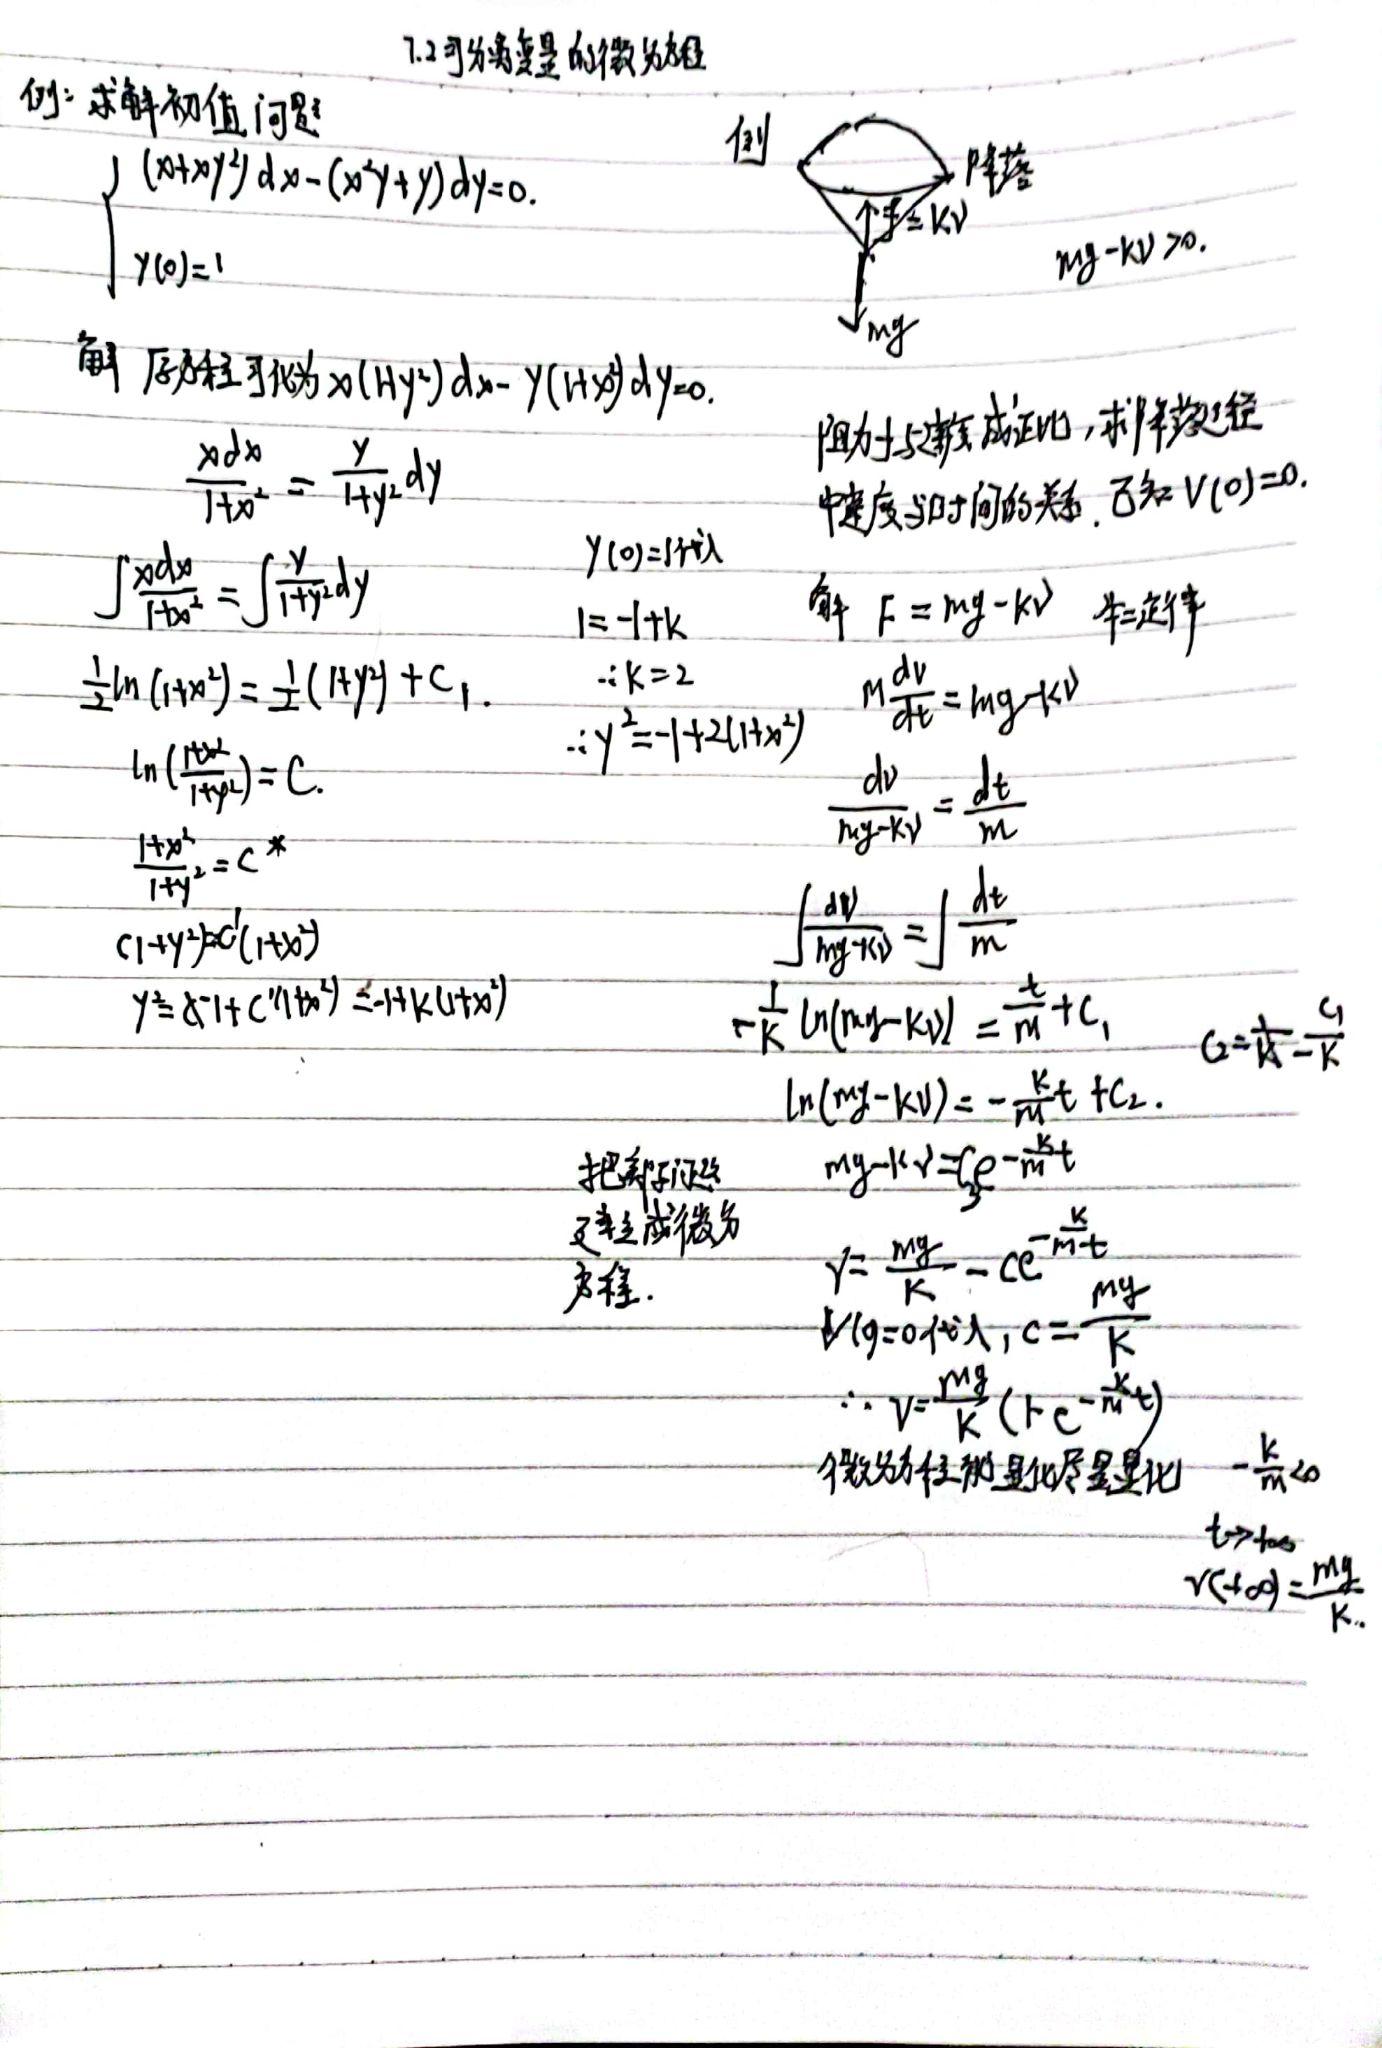 7.2可分离变量的微分方程
例：求解初值问题
(x+xy²)dx-(x²y+y)dy=0.
y(0)=1
解 原方程可化为x(1+y²)dx-y(1+x²)dy=0.
xdx/1+x² = y/1+y² dy
∫xdx/1+x² = ∫y/1+y² dy
1/2 ln(1+x²)=1/2(1+y²)+C₁.
ln(1+x²/1+y²)=C.
1+x²/1+y²=C*
(1+y²)=C'(1+x²)
y²=-1+C'(1+x²)=-1+K(1+x²)
y(0)=1代入
1=-1+K
∴K=2
∴y²=-1+2(1+x²)
例
降落
f=kv
mg
mg-kv>0.
阻力与速度成正比,求降落过程
中速度与时间的关系.已知V(0)=0.
解 F=mg-kv 牛二定律
m dv/dt=mg-kv
dv/mg-kv = dt/m
∫dv/mg-kv = ∫dt/m
-1/k ln(mg-kv)=t/m+C₁
ln(mg-kv)=-k/m t+C₂.
mg-kv=C₃e^-k/m t
v=mg/k-Ce^-k/m t
V(0)=0代入,C=mg/k
∴V=mg/k(1-e^-k/m t)
微分方程能显化尽量显化
-k/m<0
t→+∞
v(+∞)=mg/k.
建立成微分
方程.